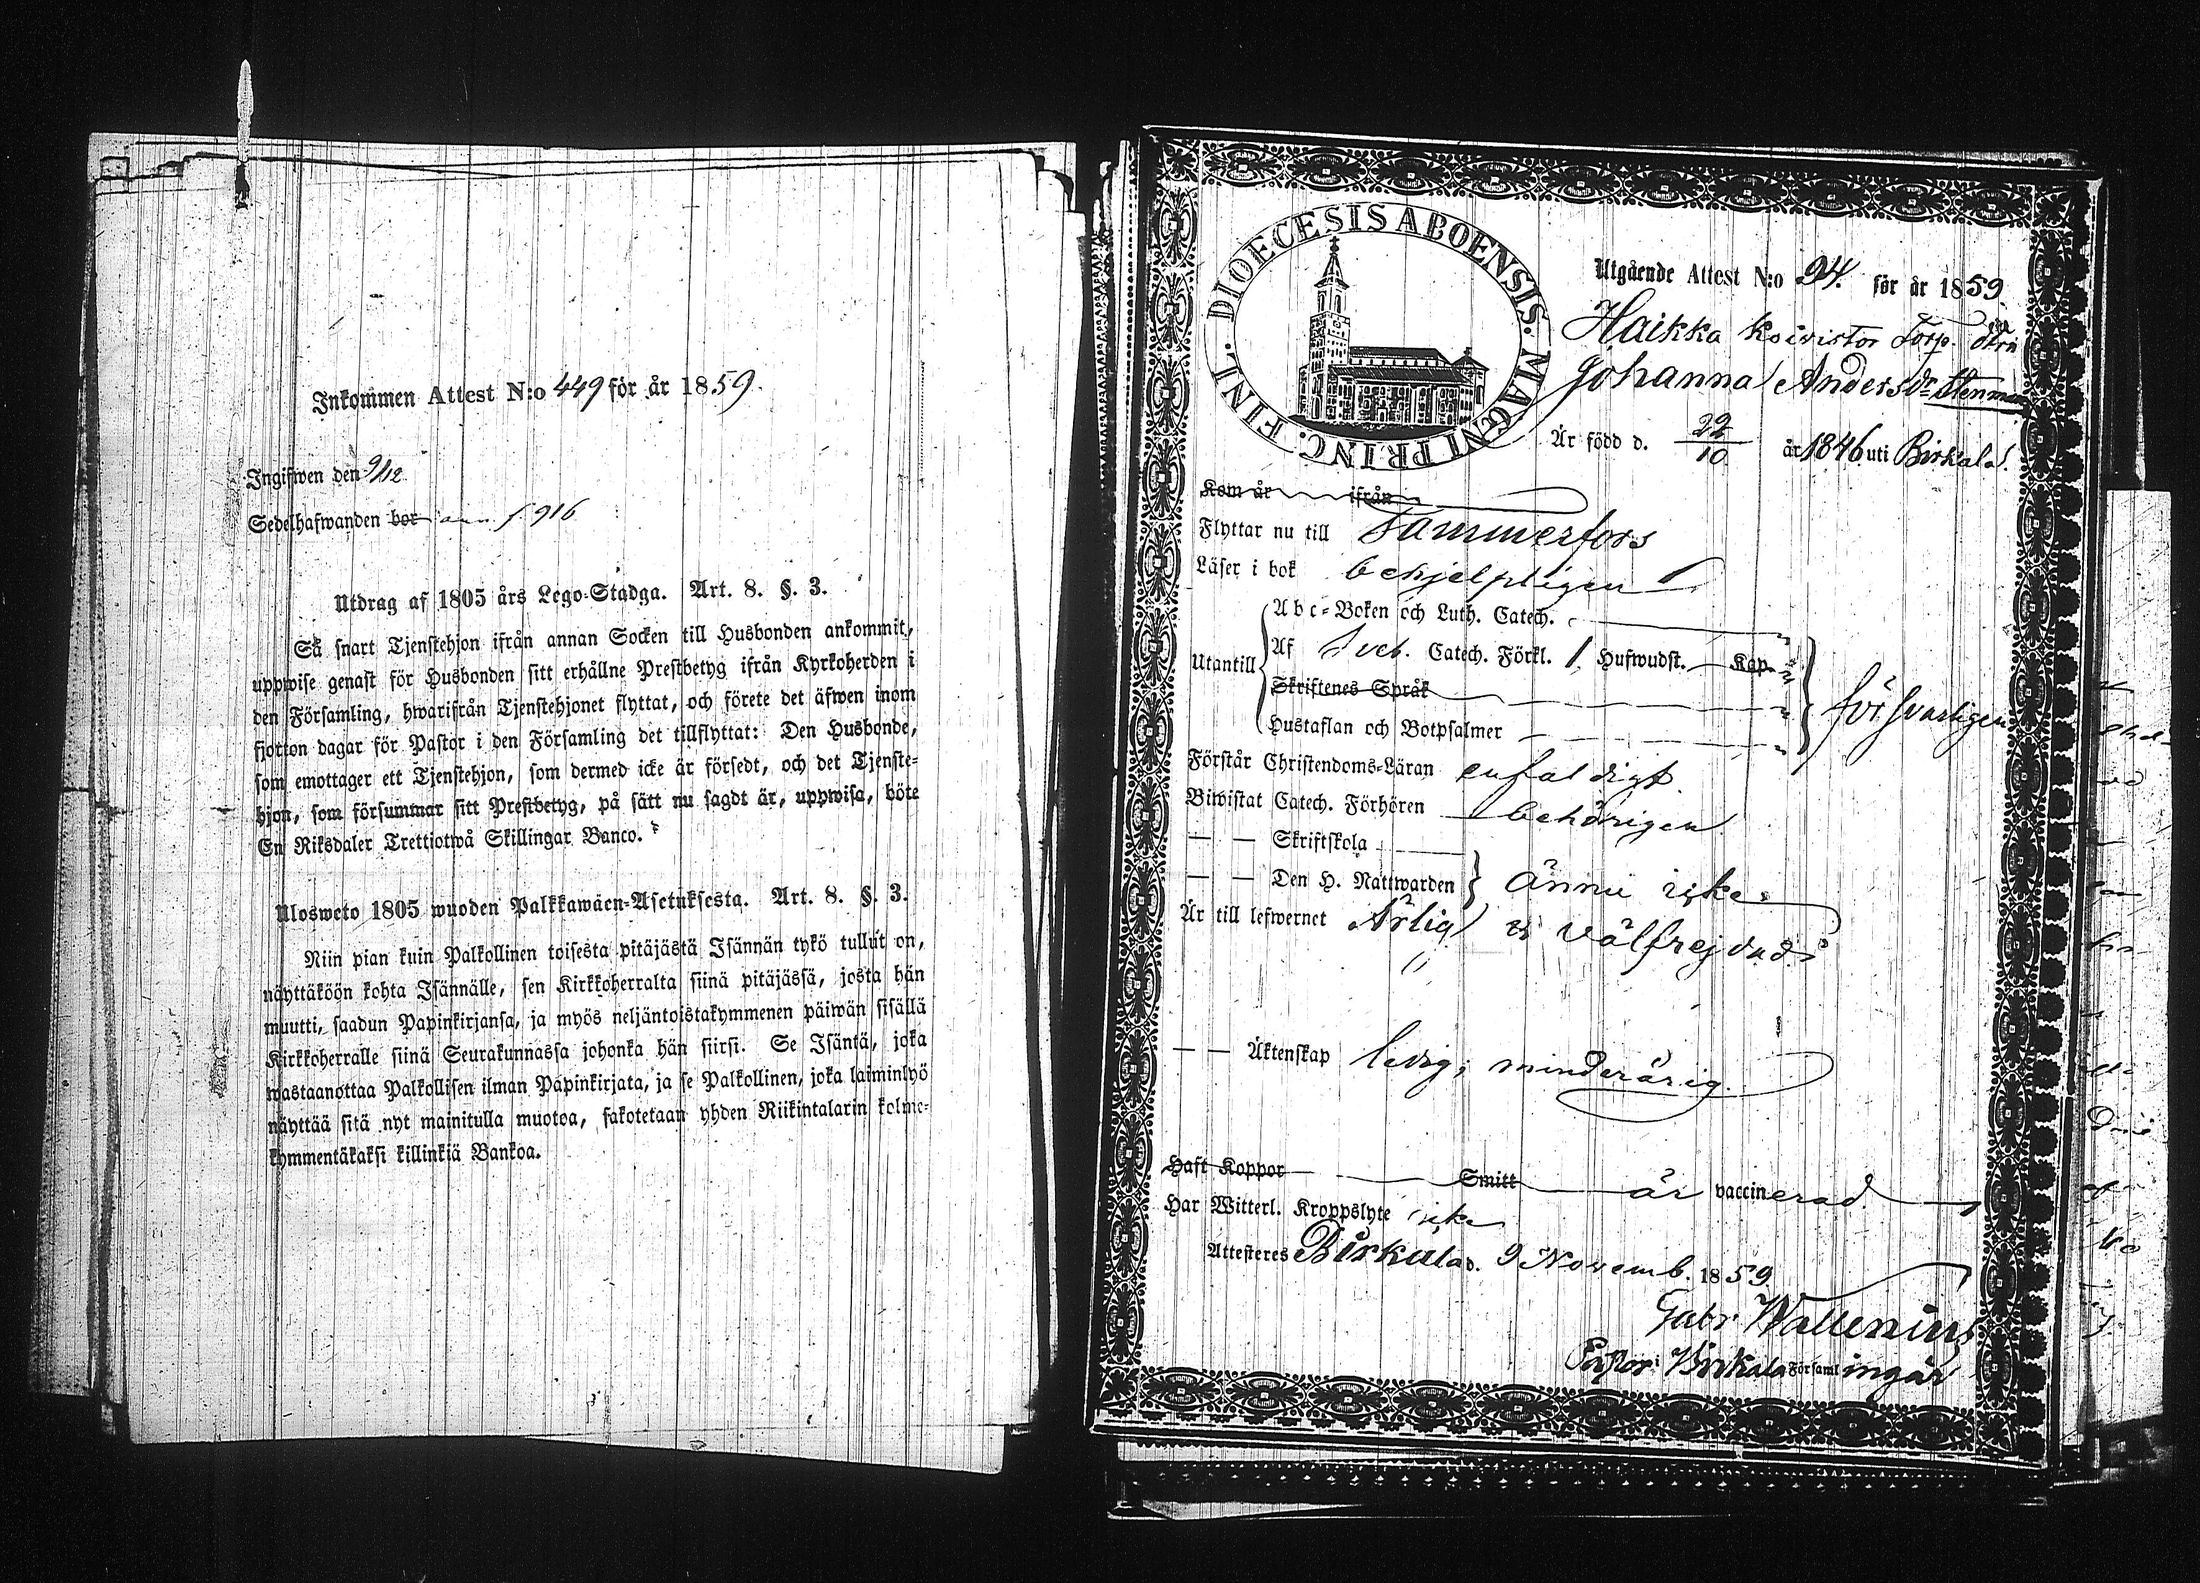 Inkommen Attest N:o 449 för år 1859.
Ingifwen den 9/12
Sedelhafwanden bor f. 916
Utdrag af 1805 års Lego-Stadga. Art. 8. §. 3.
Så snart Tjenstehjon ifrån annan Socken till Husbonden ankommit,
uppwise genast för Husbonden sitt erhållne Prestbetyg ifrån Kyrkoherden i
den Församling, hwarifrån Tjenstehjonet flyttat, och förete det äfwen inom
fjorton dagar för Pastor i den Församling det tillflyttat: Den Husbonde,
som emottager ett Tjenstehjon, som dermed icke är försedt, och det Tjenste-
hjon, som försummar sitt Prestbetyg, på sätt nu sagdt är, uppwisa, böte
En Riksdaler Trettiotwå Skillingar Banco.
Ulosweto 1805 wuoden Palkkawäen-Asetuksesta. Art. 8. §. 3.
Niin pian kuin Palkollinen toisesta pitäjästä Isännän tykö tullut on,
näyttäköön kohta Isännälle, sen Kirkkoherralta siinä pitäjässä, josta hän
muutti, saadun Papinkirjansa, ja myös neljäntoistakymmenen päiwän sisällä
Kirkkoherralle siinä Seurakunnassa johonka hän siirsi. Se Isäntä, joka
wastaanottaa Palkollisen ilman Papinkirjata, ja se Palkollinen, joka laiminlyö
näyttää sitä nyt mainitulla muotoa, sakotetaan yhden Riikintalarin kolme-
kymmentäkaksi killinkiä Bankoa.
DIOECESIS ABOENSIS. MAGNI PRINC. FINL.
Utgående Attest N:o 94. för år 1859.
Haikka Koivistor Torp. dtrn
Johanna Anders dr Stenman
Är född d. 22/10 år 1846 uti Birkala.
Kom år ifrån
Flyttar nu till Tammerfors
Läser i bok behjelpligen
Abc-Boken och Luth. Catech.
Utantill Af Sveb. Catech. Förkl. 1 Hufwudst. Kap.
Skriftenes Språk försvarligen
Hustaflan och Botpsalmer
Förstår Christendoms-Läran enfaldigt
Biwistat Catech. Förhören behörigen
— — Skriftskola
— — Den H. Nattwarden ännu icke
Är till lefwernet Ärlig & välfrejdad
— — Äktenskap ledig; minderårig.
Haft Koppor Smitt är vaccinerad
Har Witterl. Kroppslyte icke
Attesteres Birkala d. 9 Novemb. 1859
Gabr Wallenius
Pastor i Birkala Församlingar